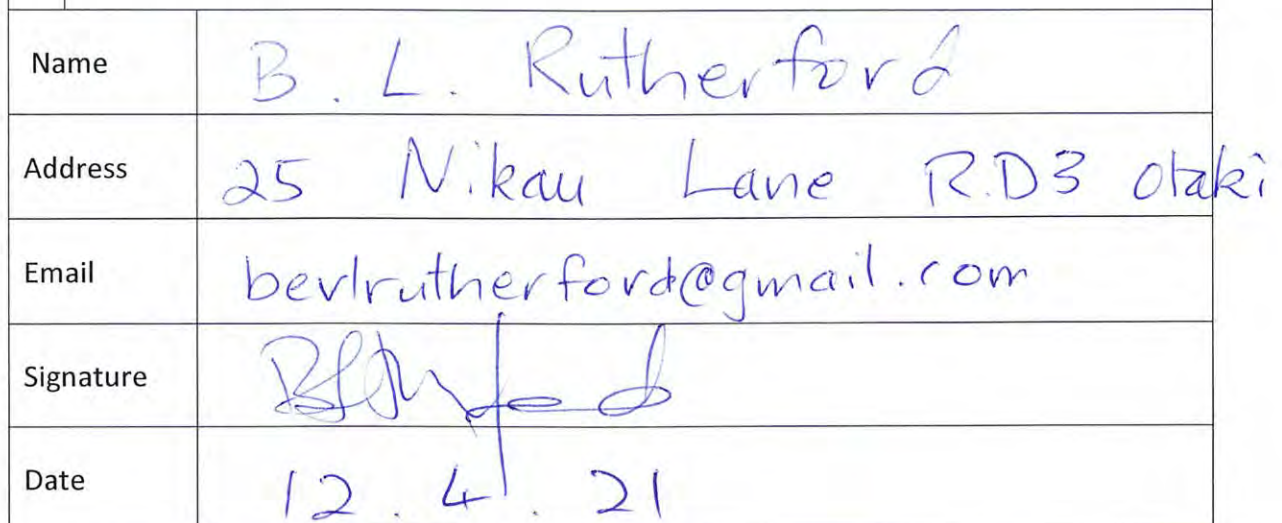 Name B. L. Rutherford
Address 25 Nikau Lane R.D3 Otaki
Email bevlrutherford@gmail.com
Signature
Date 12.4.21